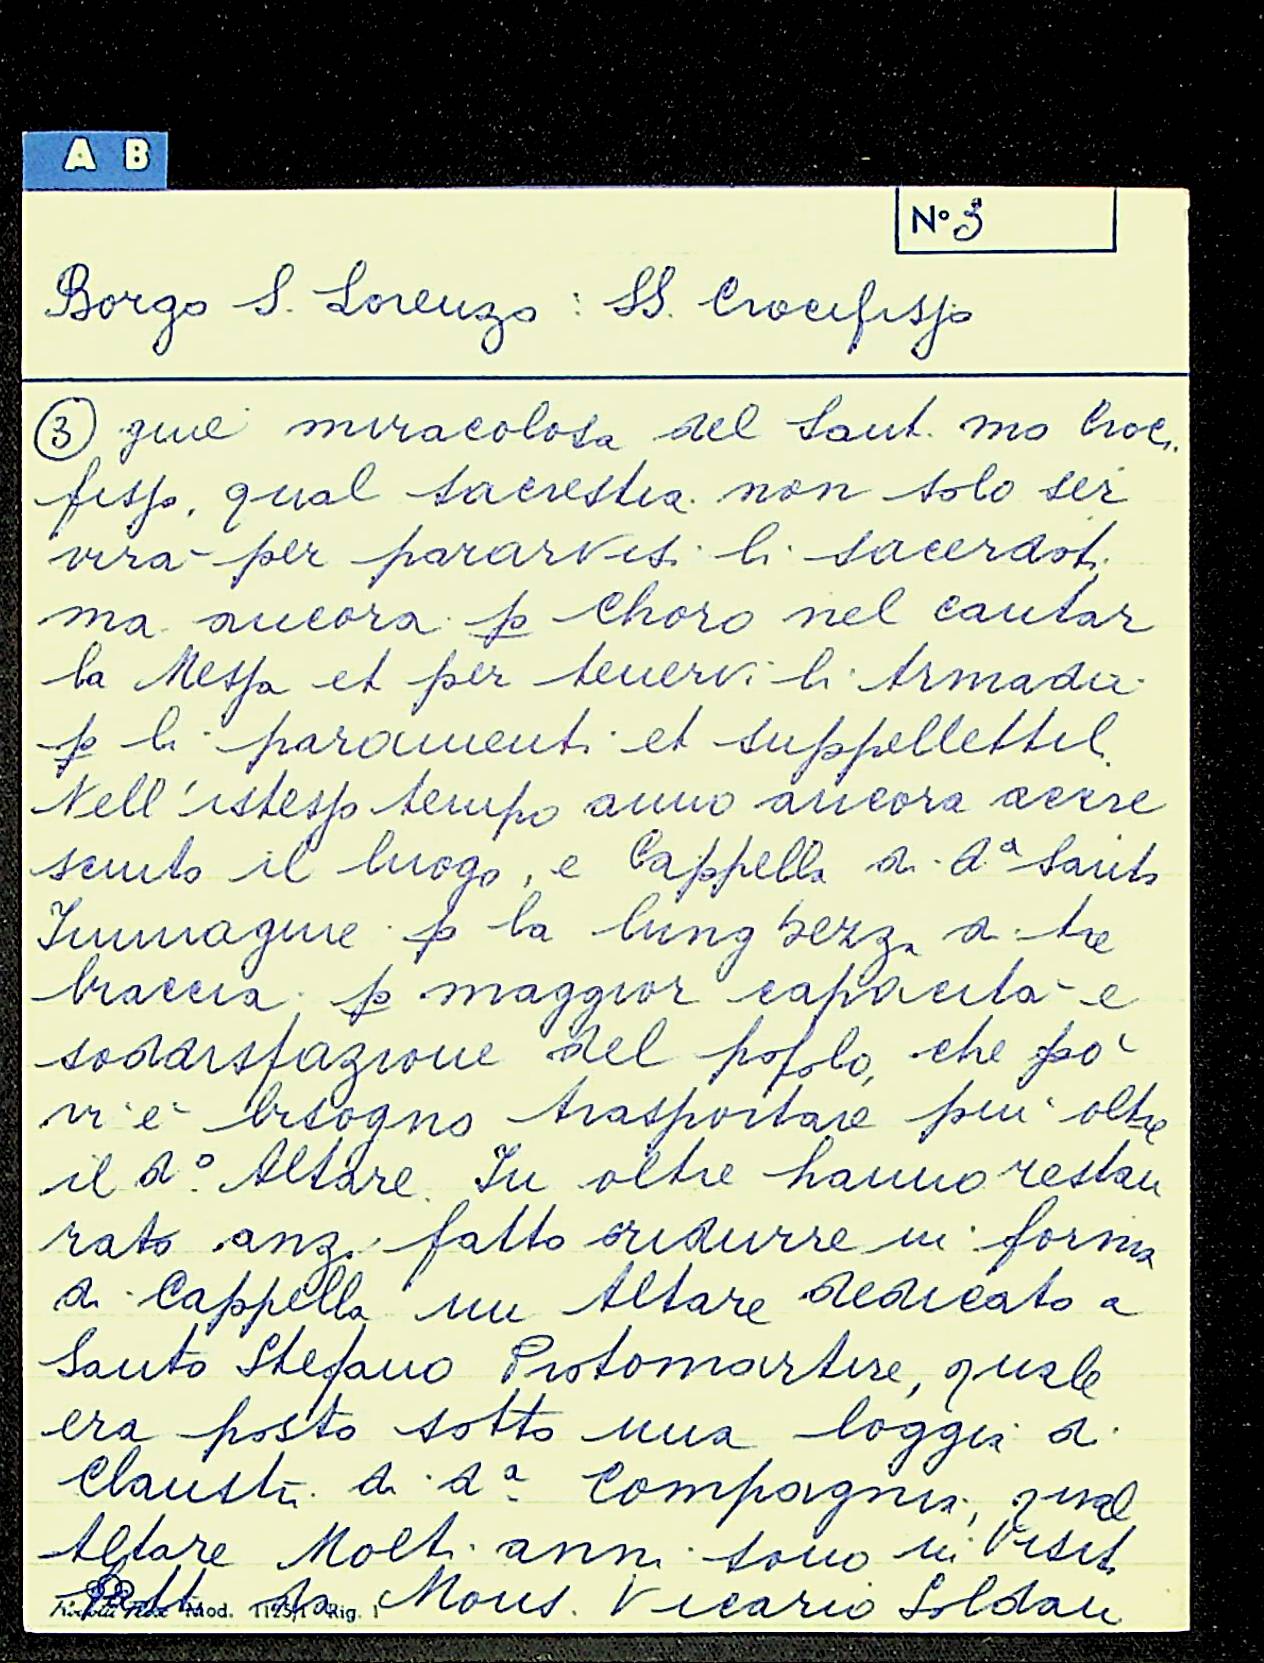 A B
N° 3
Borgo S. Lorenzo : SS. Crocifisso
③ gine miracolosa del Sant.mo Croci
fisso, qual sacrestia non solo ser
virà per pararvisi li sacerdoti
ma ancora p Choro nel cantar
la Messa et per tenervi li Armadii
p li paramenti et suppellettili.
Nell'istesso tempo anno ancora accre
sciuto il luogo, e Cappella di d.a Santa
Immagine p la lunghezza di tre
braccia p maggior capacità e
soddisfazione del popolo, che pò
vi è bisogno trasportare più oltre
il d.o Altare. In oltre hanno restau
rato anzi fatto ridurre in forma
di Cappella un Altare dedicato a
Santo Stefano Protomartire, quale
era posto sotto una loggia di
Claustri di d.a Compagnia, qual
Altare Molti anni sono in Visit
fatt da Mons. Vicario Soldani
Mod. 1125/1 Rig. 1